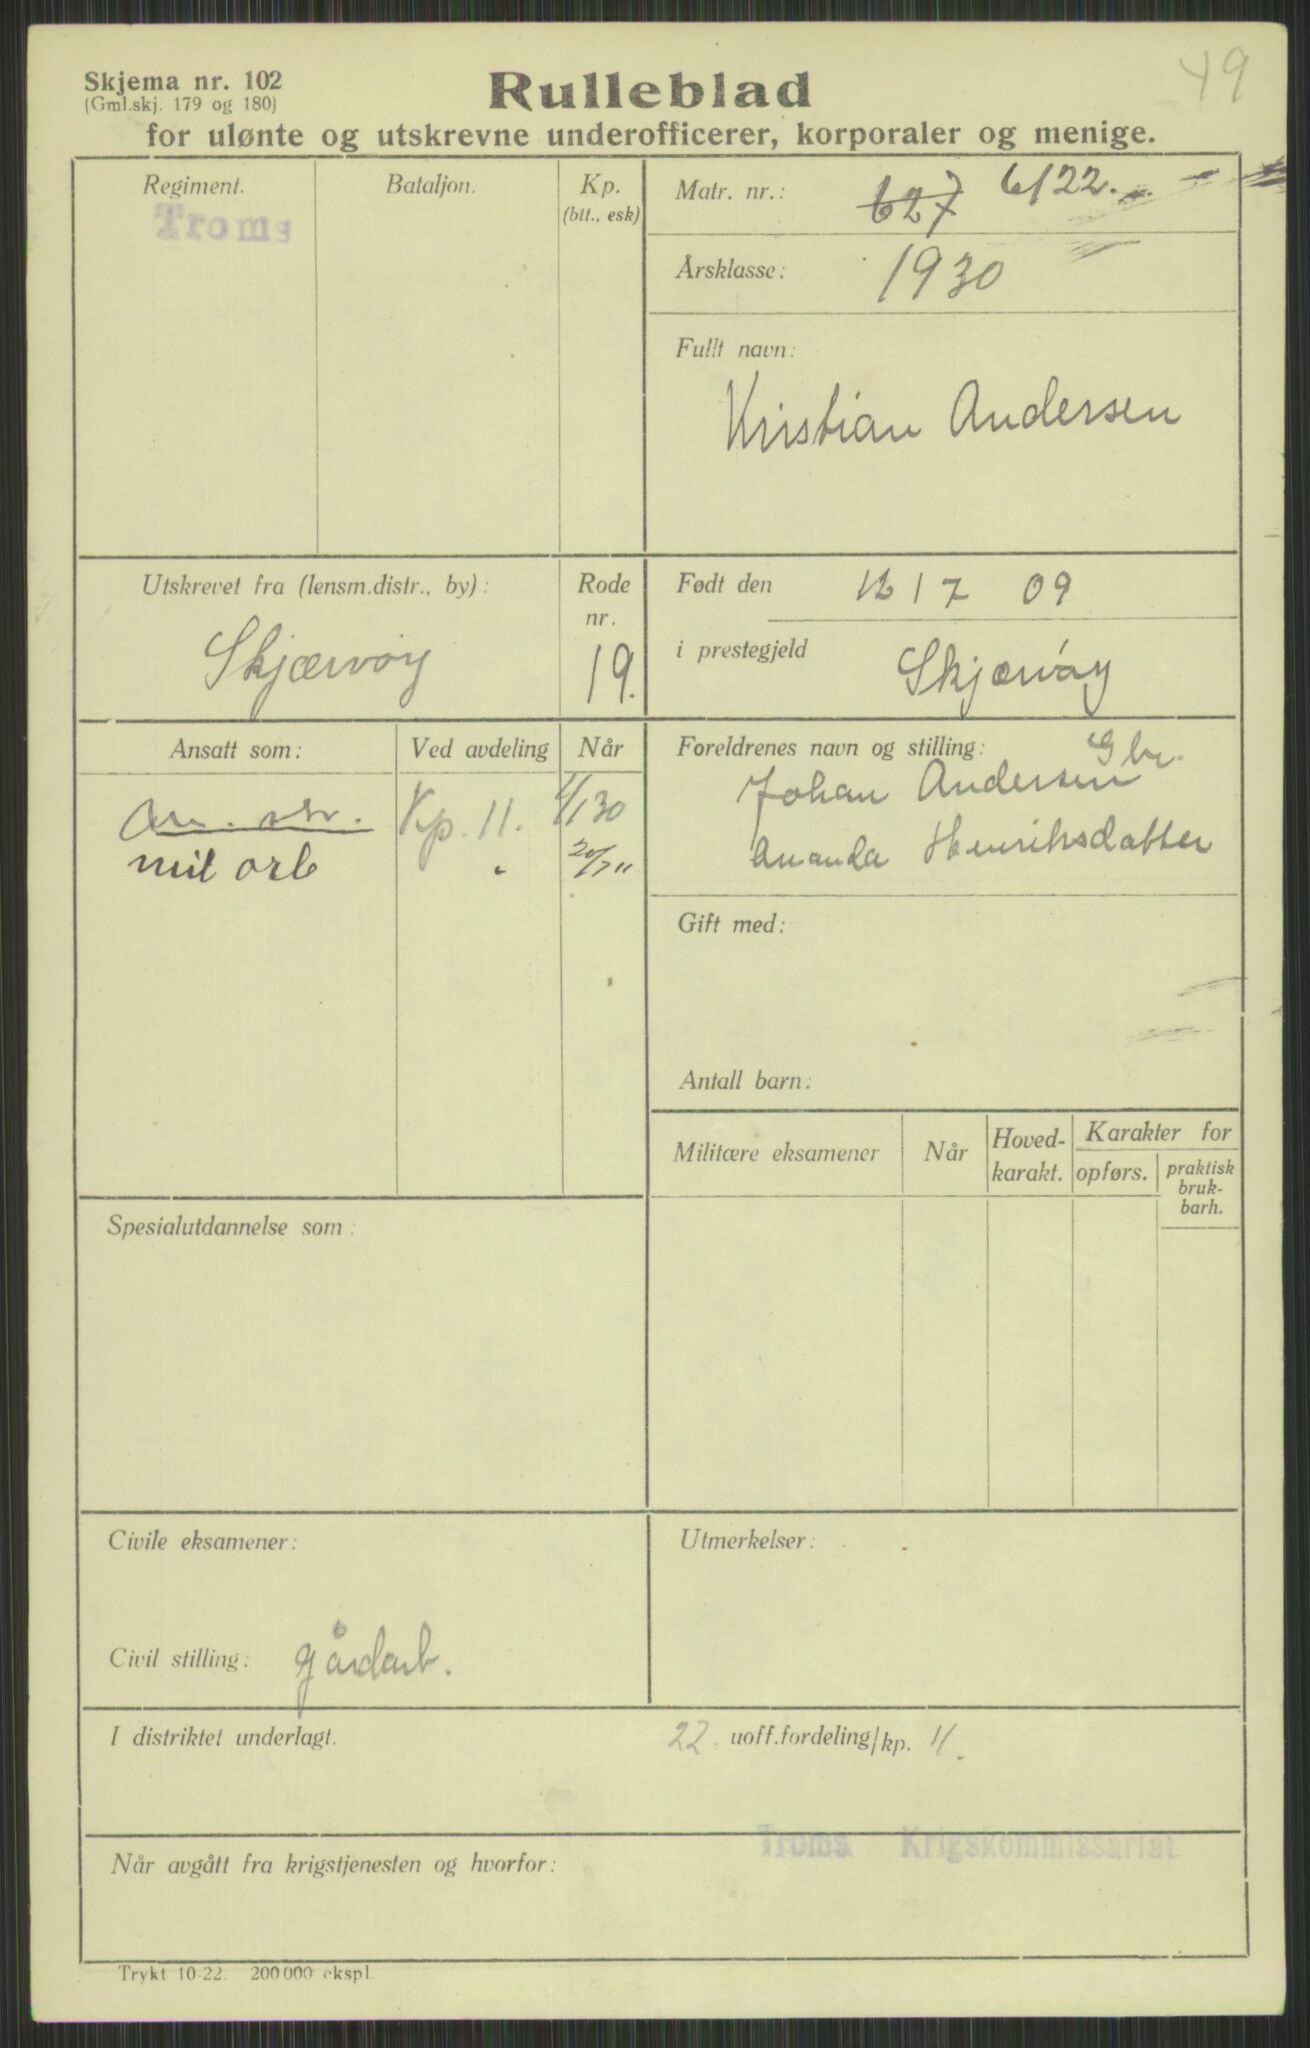 49
Skjema nr. 102
(Gml.skj. 179 og 180)
Rulleblad
for ulønte og utskrevne underofficerer, korporaler og menige.
Regiment.
Troms
Bataljon.
Kp.
(btt., esk)
Matr. nr.: 627 6122.
Årsklasse: 1930
Fullt navn:
Kristian Andersen
Utskrevet fra (lensm.distr., by):
Skjærvøy
Rode
nr.
19.
Født den 7 09
i prestegjeld Skjærvøy
Ansatt som:
Ved avdeling
Når
Kp. 11. 1/1 30
mil arb " 20/7 "
Foreldrenes navn og stilling: Gbr.
Johan Andersen
Ananda Henriksdatter
Gift med:
Antall barn:
Militære eksamener
Når
Hoved-
karakt.
Karakter for
opførs.
praktisk
bruk-
barh.
Spesialutdannelse som:
Civile eksamener:
Civil stilling: gårdarb.
Utmerkelser:
I distriktet underlagt. 22. uoff.fordeling/kp. 11.
Troms Krigskommissariat
Når avgått fra krigstjenesten og hvorfor:
Trykt 10-22. 200 000 ekspl.